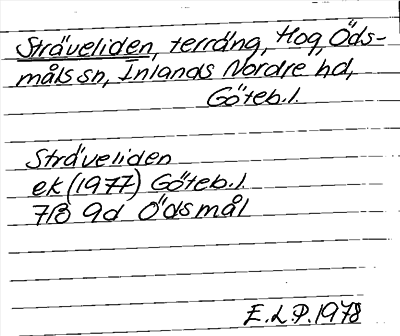 Sträveliden, terräng, Hog, Öds-
måls sn, Inlands Nordre hd,
Göteb.l.
Sträveliden
ek (1977) Göteb.l.
7B 9d Ödsmål
E.L.P. 1978